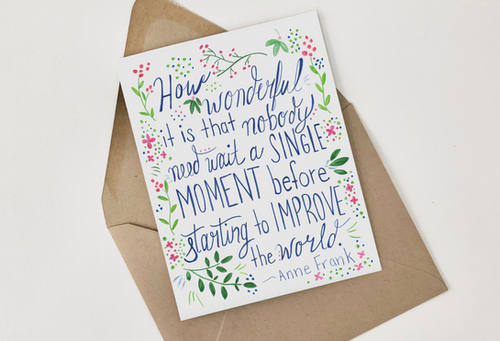 How wonderful
it is that nobody
need wait a SINGLE
MOMENT before
starting to IMPROVE
the world.
~Anne Frank